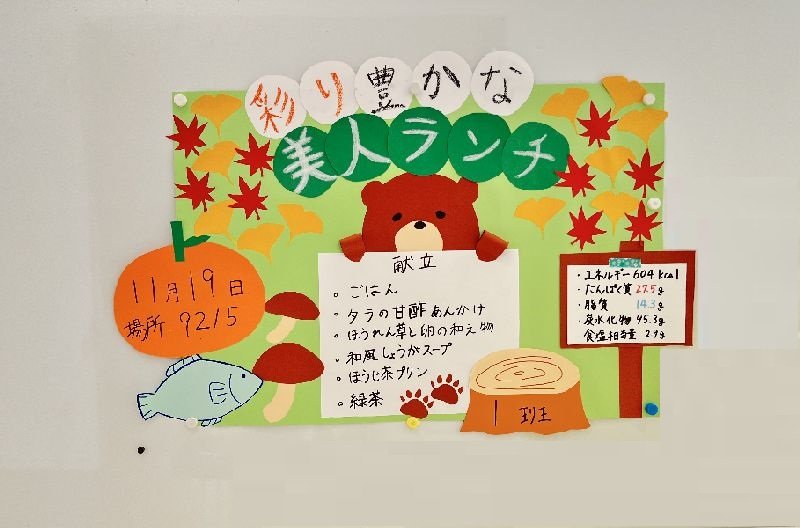 彩り豊かな
美人ランチ
11月19日
場所 9215
献立
・ごはん
・タラの甘酢あんかけ
・ほうれん草と卵の和え物
・和風しょうがスープ
・ほうじ茶プリン
・緑茶
1班
・エネルギー604kcal
・たんぱく質27.5g
・脂質 14.3g
・炭水化物 95.3g
食塩相当量 2.9g